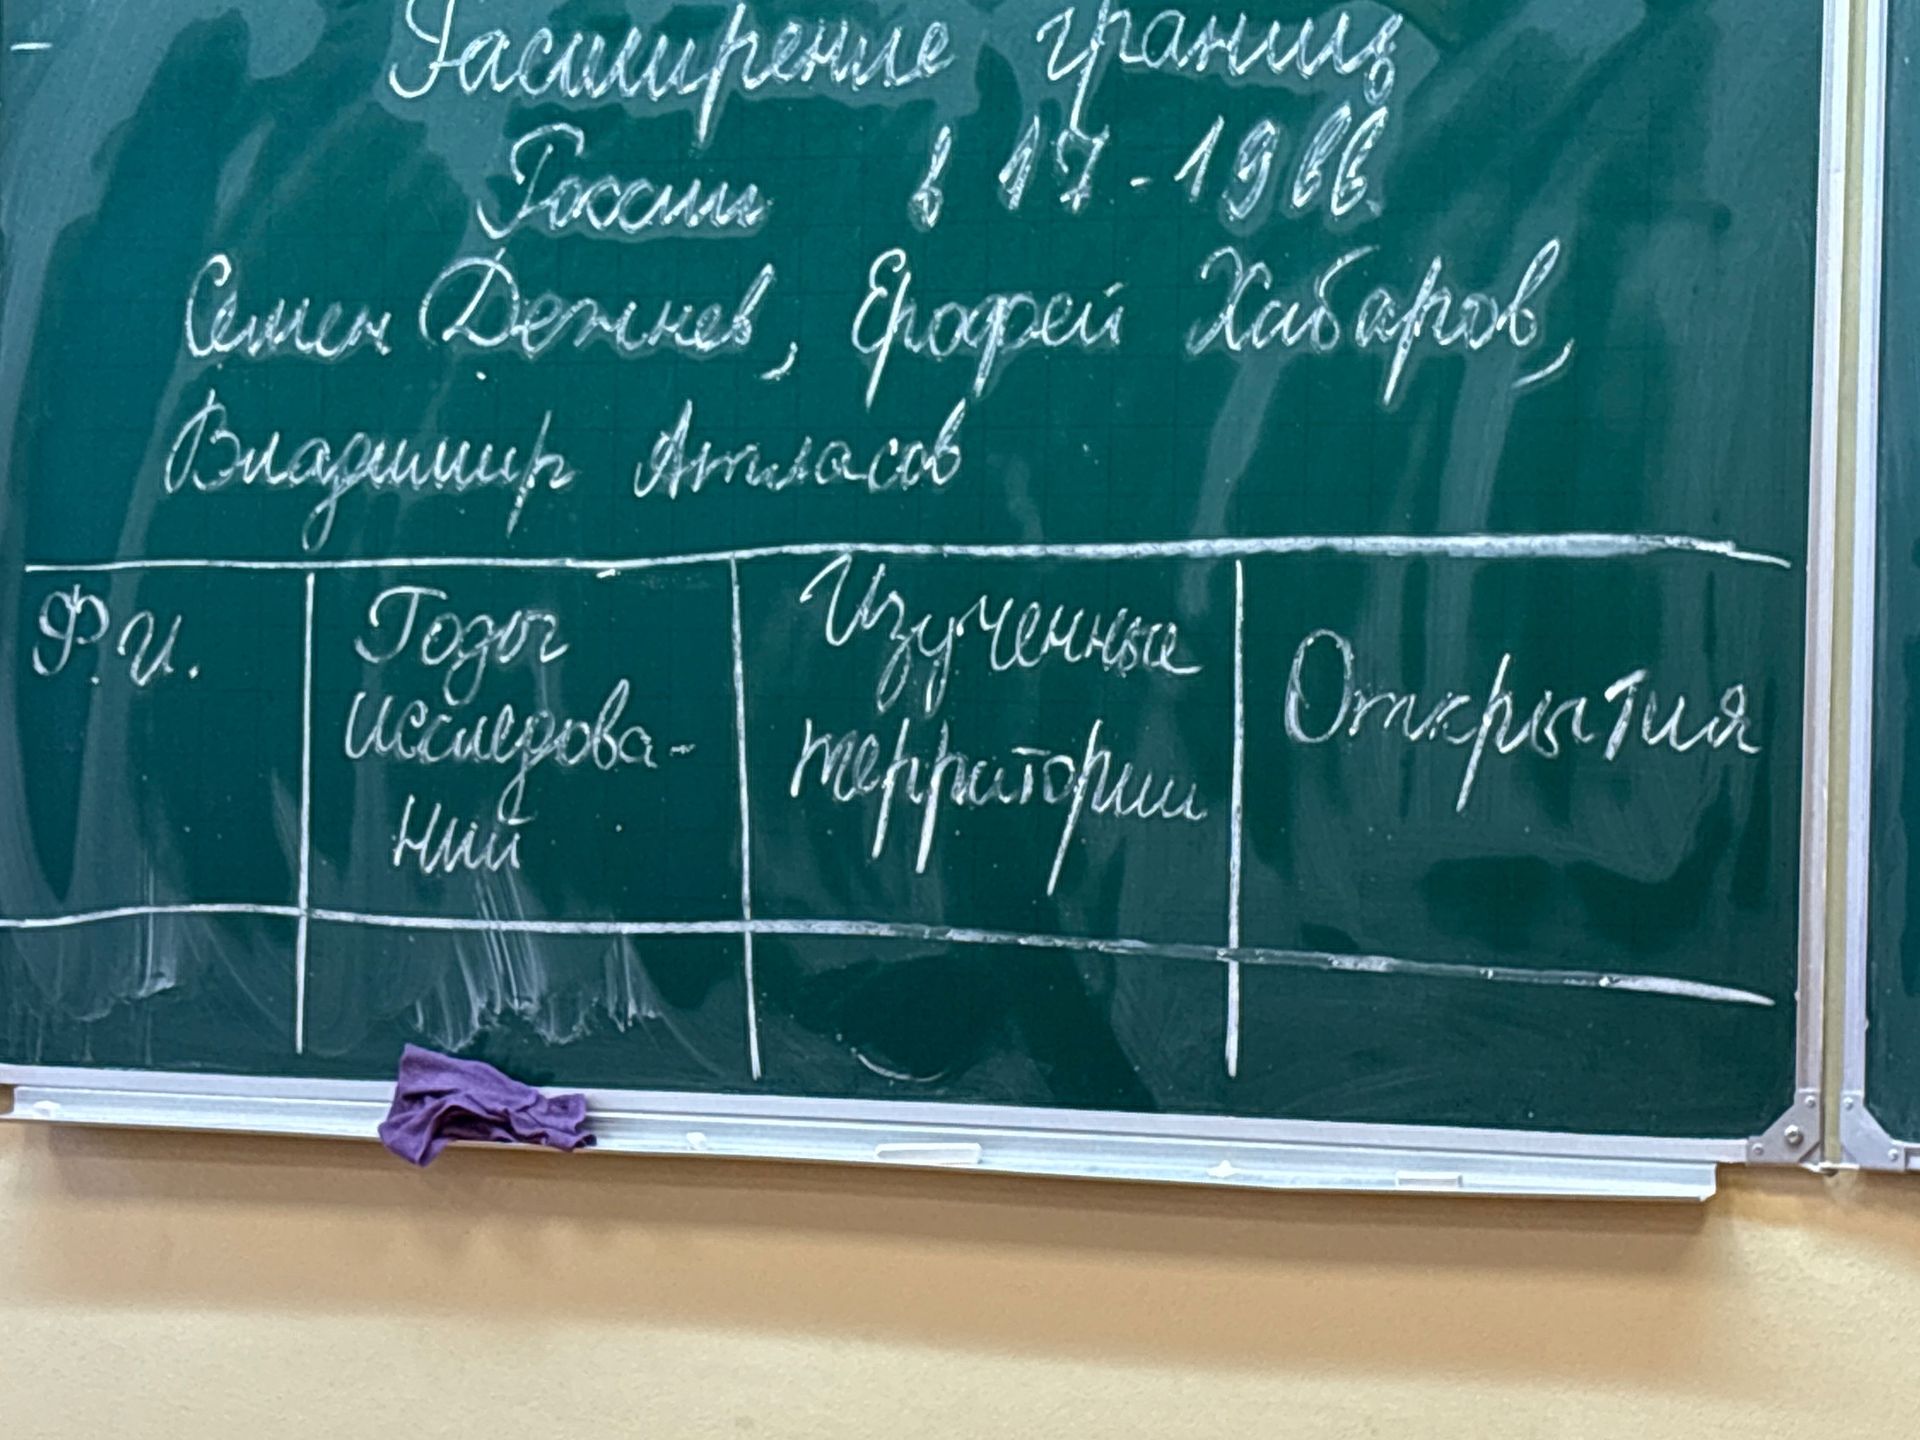 Расширение границ
России в 17-19 вв.
Семен Дежнев, Ерофей Хабаров,
Владимир Атласов
Ф.И.
Годы
исследова-
ний
Изученные
территории
Открытия